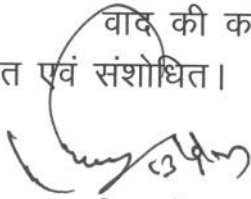 वाद की क
त एवं संशोधित।